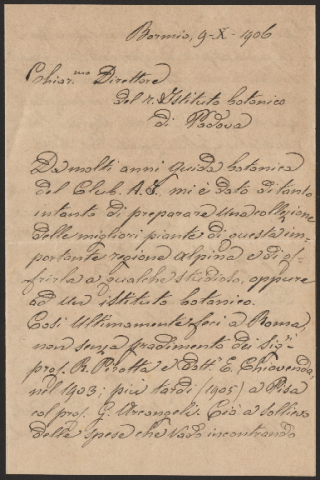 Bormio, 9-X-1906
Chiar.mo Direttore
del r. Istituto botanico
di Padova
Da molti anni guida botanica
del Club. A. I. mi è dato di tanto
intanto di preparare una collezione
delle migliori piante di questa im-
portante regione alpina e di of-
frirla a qualche studioso, oppure
ad un istituto botanico.
Così ultimamente feci a Roma,
non senza gradimento dei Sig.i
prof. R. Pirotta e Dott. E. Chiovenda,
nel 1903: più tardi (1905) a Pisa
col prof. G. Arcangeli. Ciò a sollievo
delle spese che vado incontrando